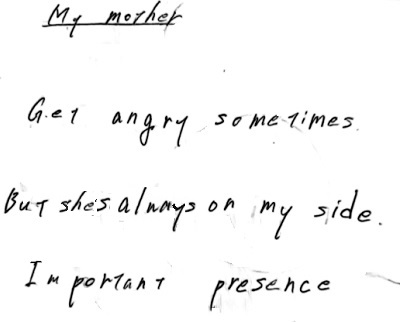 My mother
Get angry sometimes.
But she's always on my side.
Important presence